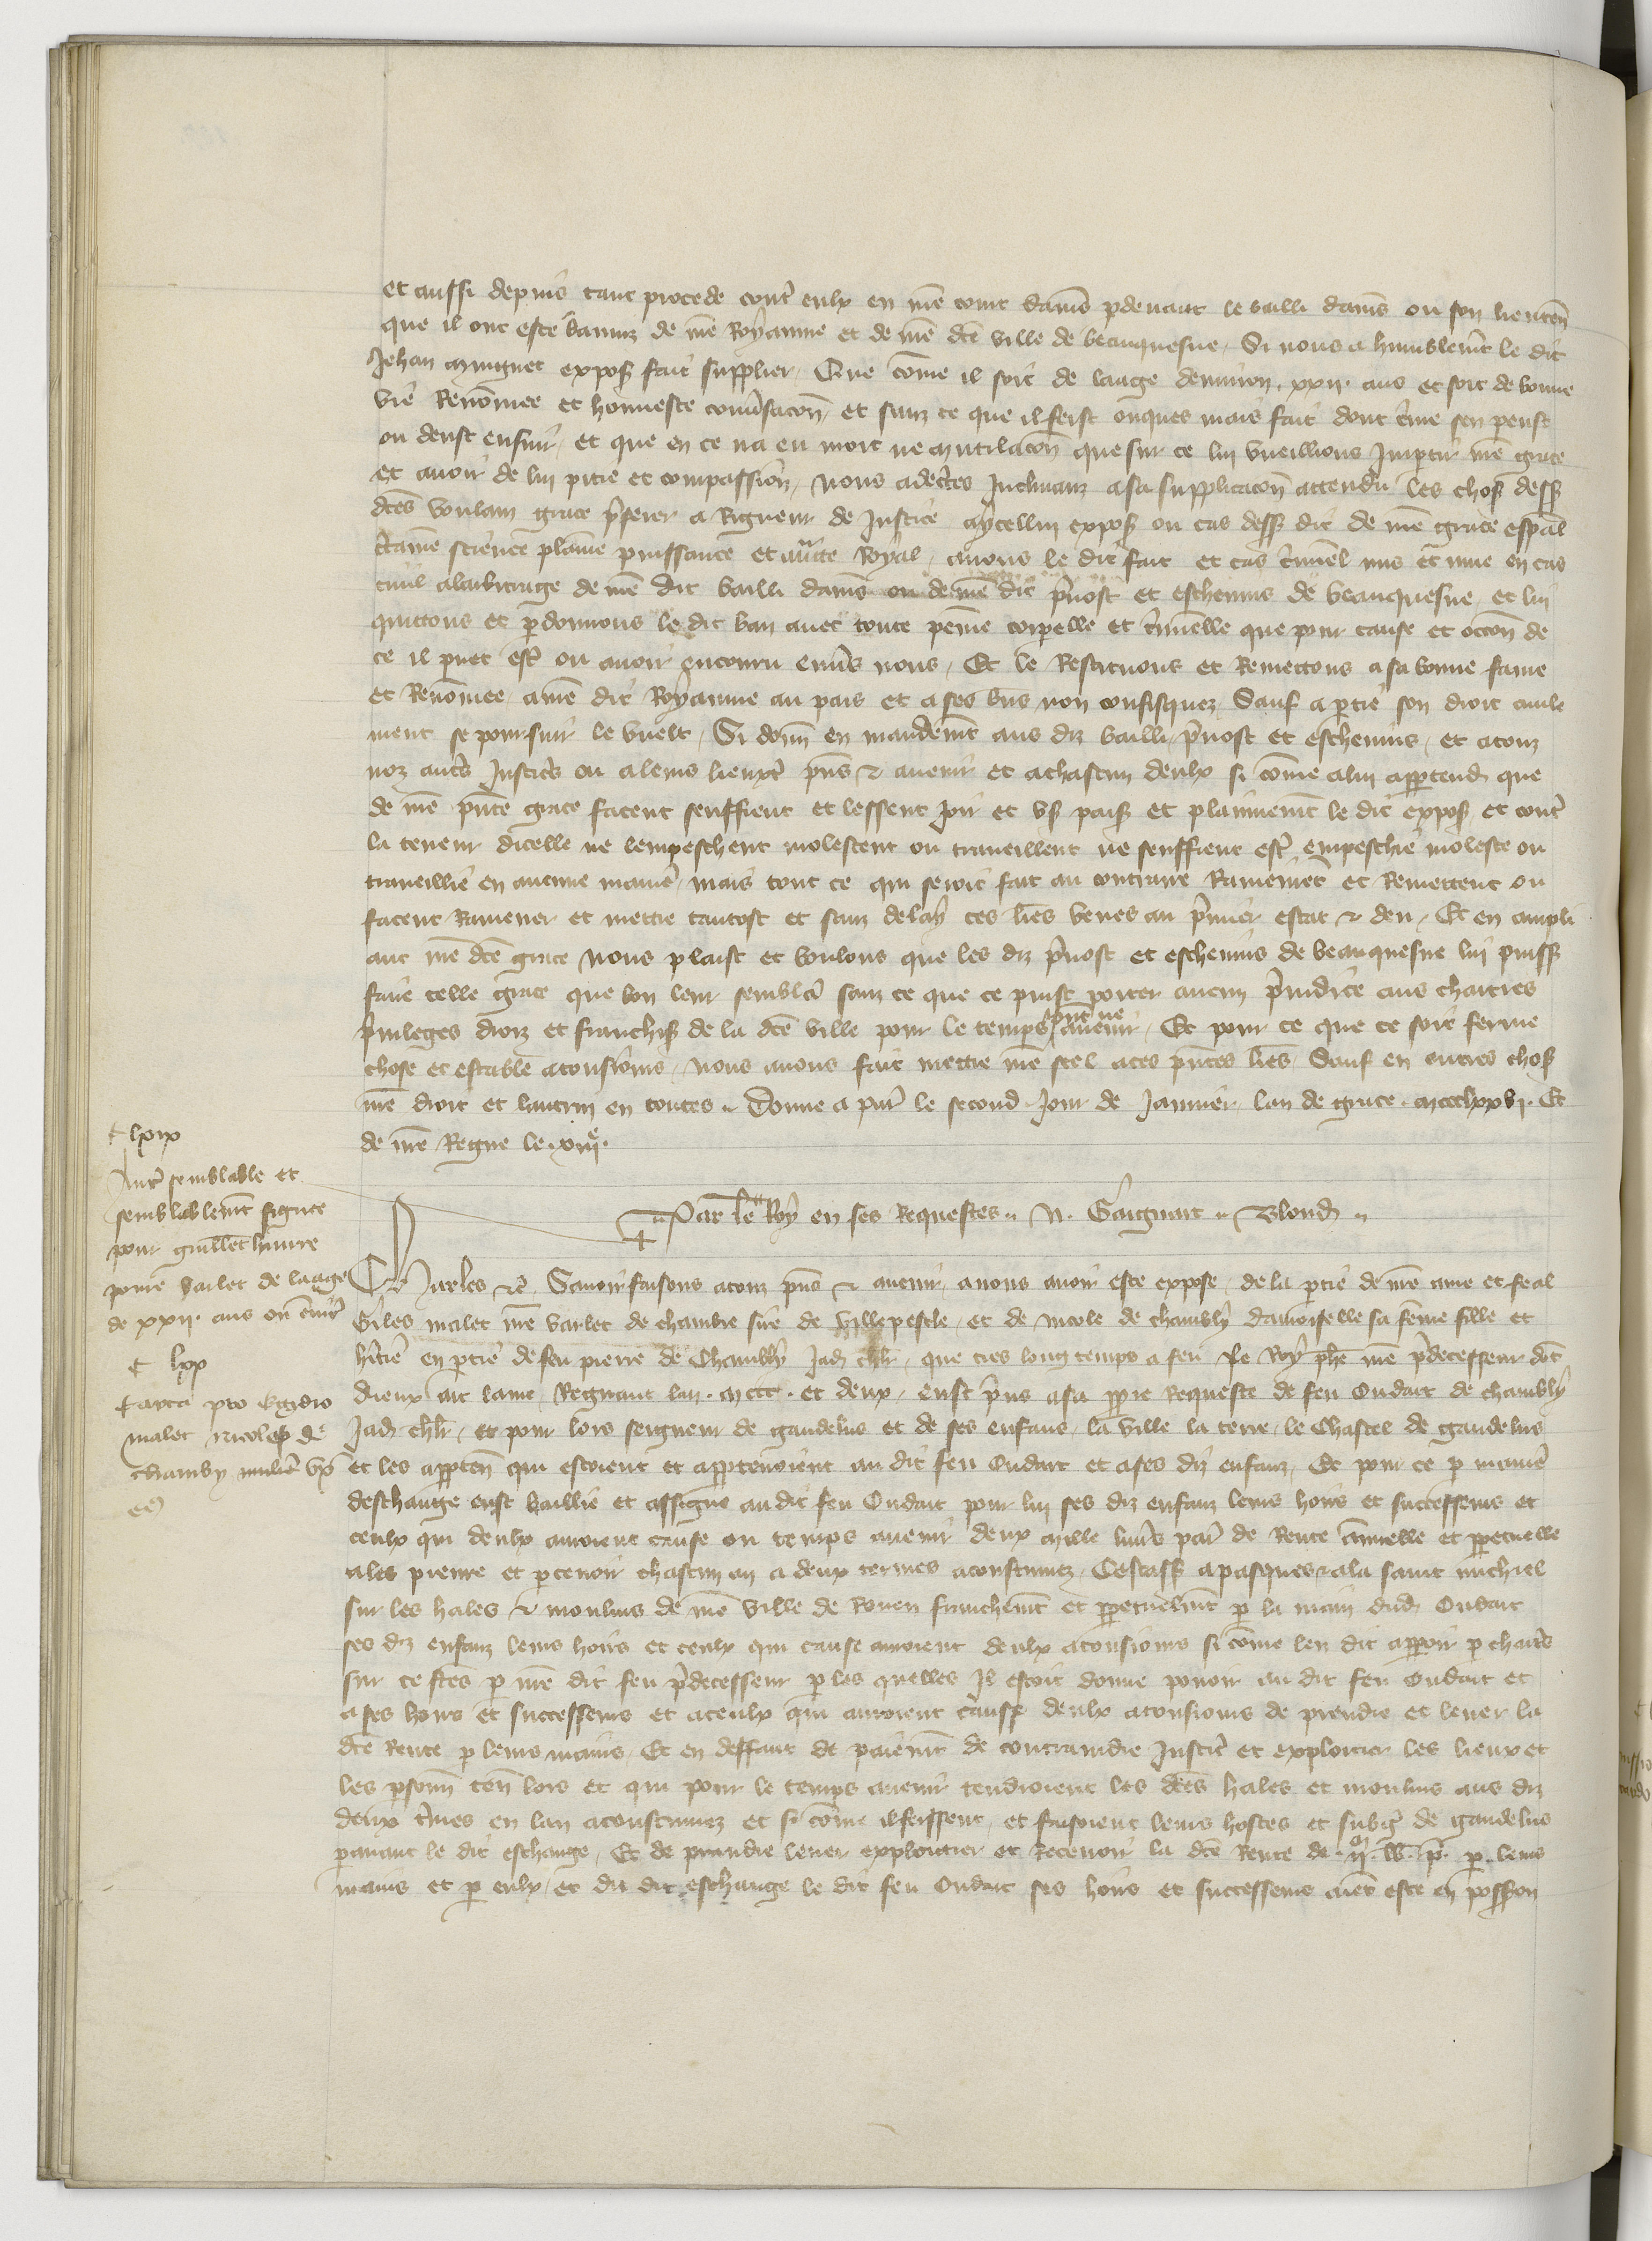 et aussi depuis tant procede cont̃ eulx en nr̃e court damiẽs pdeuant le bailli damiẽs ou son lieuteñ
que il ont este bannız de nr̃e Royaume et de nr̃e dc̃e ville de beauquesne / Si nous a humblem̃t le dit
Jehan mignet exposã fait supplier / Que com̃e il soit de laage denuiron . xxii . ans et soit de bonne
vie Renom̃ee et honneste conũsac̃on / et sanz ce que il feist onques mais fait dont cr̃me sen peust
ou deust ensuir / et que en ce na eu mort ne mutilac̃on que sur ce lui vueillions Imptir nr̃e grace
et auoir de lui pitie et compassion / Nous adec̃tes Inclinanz a sa supplicac̃on attendu les chos̃ dess̃
dc̃es voulans grace p̃ferer a Rigueur de Justice aycellui exposã ou cas dess̃ dit de nr̃e grace esp̃al
c̃taine science plaine puissance et auc̃te Royal / auons le dit fait et cas c̃iminel mis et mue en cas
ciuil alarbitrage de nr̃e dit bailli damiẽs ou de nr̃e dit p̃uost et escheuins de beauquesne / et lui
quittons et pdonnons le dit ban auec toute peine corpelle et c̃iminelle que pour cause et occ̃on de
ce il puet est̃ ou auoir encouru enũs nous / Et le Restituons et Remettons a sa bonne fame
et Renom̃ee a nr̃e dit Royaume au pais et a ses bñs non confisquez Sauf a ptie son droit ciuile
ment se poursuir le vuelt / Si donñ en mandem̃t aus diz bailli p̃uost et escheuins / et a touz
noz autr̃s Justicr̃s ou a leurs lieuxtẽ p̃ns & auenir et a chascun deulx si com̃e a lui apptend̃ que
de nr̃e p̃nte grace facent seuffrent et lessent Joir et vs̃ paisib̃ et plainnem̃t le dit exposã et cont̃
la teneur dicelle ne lempeschent molestent ou traueillent ne seuffrent est̃ empeschie moleste ou
traueillie en aucune manie / mais tout ce qui seroit fait au contraire Rameinet et Remettent ou
facent Ramener et mettre tantost et sanz delay ces lr̃es veues au p̃mier estat & deu / Et en ampli
ant nr̃e dc̃e grace Nous plaist et voulons que les diz p̃uost et escheuins de beauquesne lui puiss̃
faire telle grace que bon leur semblera sanz ce que ce puist porter aucun p̃iudice aus chartres
p̃uileges droiz et franchis̃ de la dc̃e ville pour le temps auenir / Et pour ce que ce soit ferme
chose et estable a tousiours / Nous auons fait mettre nr̃e seel a ces p̃ntes lr̃es Sauf en autres chos̃
nr̃e droit et lautrui en toutes . Donne a par̃ le second Jour de Januier lan de grace . mccclxxvi . Et
de nr̃e Regne le . xiiiᵉ.
Par le Roy en ses Requestes . N. Gaignart . Blond̃
Charles &c̃ Sauoir faisons a touz p̃ns & auenir / a nous auoir este expose / de la ptie de nr̃e ame et feal
Giles malet nr̃e varlet de chambre sire de villepescle / et de nicole de chambly damoiselle sa fem̃e fille et
hr̃itie en ptie de feu pierre de Chambly Jad̃ chl̃r / que tres long temps a feu le Roy phẽ nr̃e p̃decesseur dõt
dieux ait lame Regnant lan . mccc . et deux / eust p̃ns a sa ppre Requeste de feu Oudart de chambly
Jad̃ chl̃r / et pour lors seigneur de gandelus et de ses enfans / la ville la terre / le Chastel de gandelus
et les apptenñ qui estoient et apptenoient au dit feu Oudart et a ses diz enfanz / Et pour ce p manie
deschange eust baillie et assigne au dit feu Oudart pour lui ses diz enfanz leurs hoirs et successeurs et
ceulx qui deulx auroient cause ou temps auenir deux mille liur̃s par̃ de Rente annuelle et ppetuelle
a les prenre et pceuoir chascun an a deux termes acoustumez / Cestass̃ a pasques & a la saint michiel
sur les hales & moulins de nr̃e ville de Rouen franchem̃t et ppetuelm̃t p la main dud̃ Oudart
ses diz enfanz leurs hoirs et ceulx qui cause auroient deulx a tousiours si com̃e len dit appoir p chartr̃s
sur ce fc̃es p nr̃e dit feu p̃decesseur p les quelles Il estoit donne pouoir au dit feu Oudart et
a ses hoirs et successeurs et a ceulx qui auroient cause deulx a tousiours de prendre et leuer la
dc̃e Rente p leurs mains / Et en deffaut de paiem̃t de contraindre Justicr̃ et exploitier les lieux et
les psonñ teñ lors et qui pour le temps auenir tendroient les dc̃es hales et moulins aus diz
deux tr̃mes en lan acoustumez et si com̃e il feissent / et faisoient leurs hostes et subgr̃ de gandelus
pauant le dit eschange / Et de prandre leuer exploitier et Receuoir la dc̃e Rente de . iiᵐ . lb̃ . p̃ . p leurs
mains et p eulx / et du dit eschange le dit feu Oudart ses hoirs et successeurs aient este en possess̃on
lxix
Autr̃ semblable et
semblablem̃t signee
pour guill̃et
joure varlet de laage
de xxii . ans ou enuir̃
lxx
Carta pro Egidio
malet Nicolea de
chamby mulier̃ vx̃
eẽ